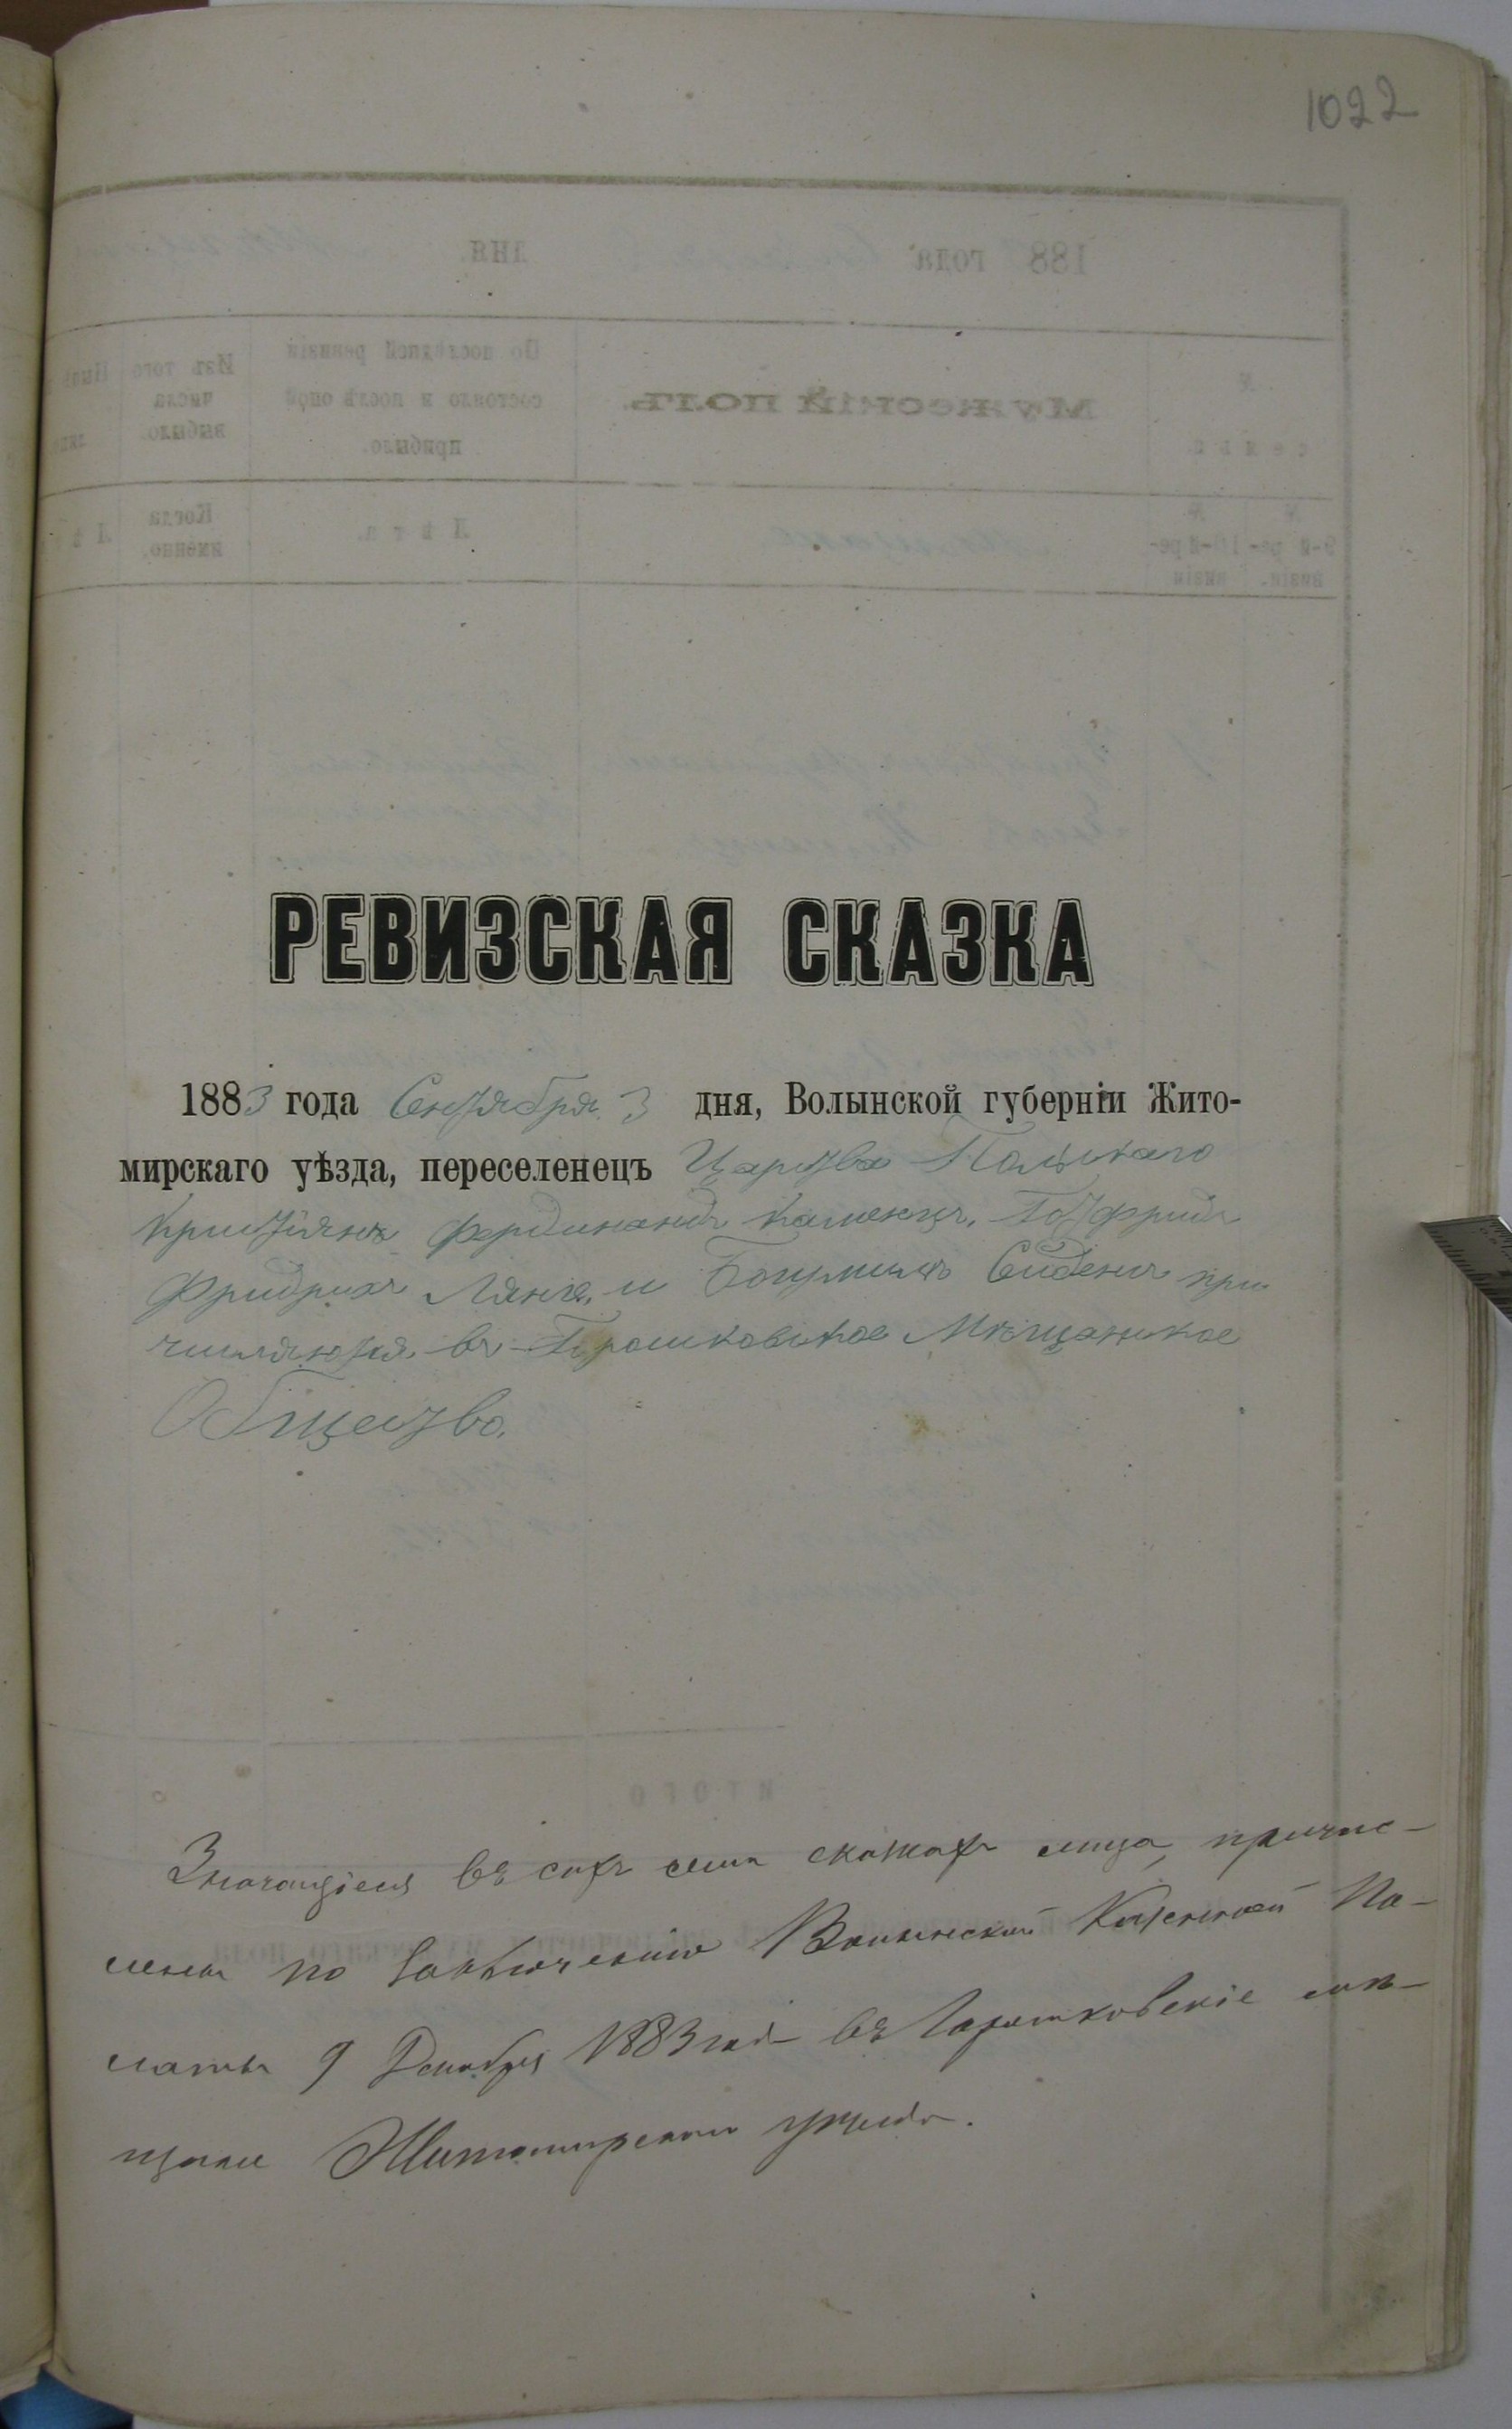 1022
РЕВИЗСКАЯ СКАЗКА
1883 года Сентября 3 дня, Волынской губерніи Жито-
мирскаго уѣзда, переселенецъ Царства Польскаго
Кристіянъ Фердинандъ Каменцъ, Готфридъ
Фридрихъ Лянге, и Богумилъ Сидень при
числяются въ Горошковское Мѣщанское
Общество.
Значащіеся въ сихъ сказкахъ лица, причис-
лены по заключенію Волынской Казенной Па-
латы 9 Декабря 1883 года въ Горошковскіе мѣ-
щане Житомирскаго уѣзда.